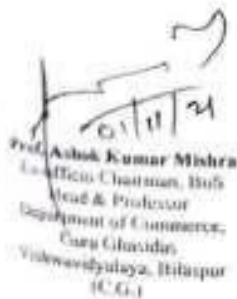 01/11/21
Prof. Ashok Kumar Mishra
Ex-officio Chairman, BoS
Head & Professor
Department of Commerce,
Guru Ghasidas
Vishwavidyalaya, Bilaspur
(C.G.)